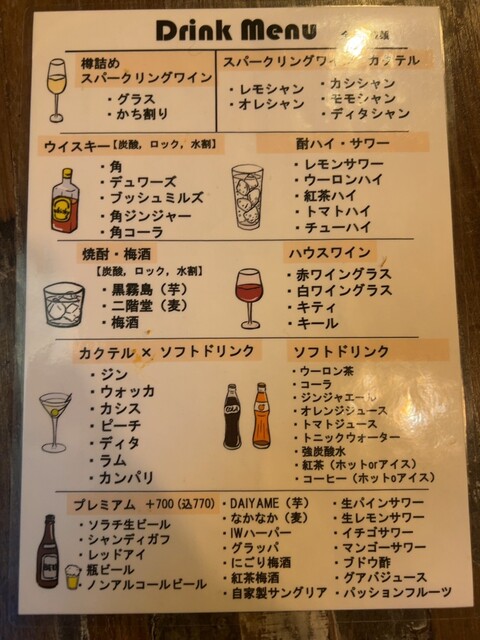 Drink Menu
樽詰め
スパークリングワイン
・グラス
・かち割り
スパークリングワイン カクテル
・レモシャン
・オレシャン
・カシシャン
・モモシャン
・ディタシャン
ウイスキー【炭酸，ロック，水割】
・角
・デュワーズ
・ブッシュミルズ
・角ジンジャー
・角コーラ
酎ハイ・サワー
・レモンサワー
・ウーロンハイ
・紅茶ハイ
・トマトハイ
・チューハイ
焼酎・梅酒
【炭酸，ロック，水割】
・黒霧島（芋）
・二階堂（麦）
・梅酒
ハウスワイン
・赤ワイングラス
・白ワイングラス
・キティ
・キール
カクテル × ソフトドリンク
・ジン
・ウォッカ
・カシス
・ピーチ
・ディタ
・ラム
・カンパリ
ソフトドリンク
・ウーロン茶
・コーラ
・ジンジャエール
・オレンジジュース
・トマトジュース
・トニックウォーター
・強炭酸水
・紅茶（ホットorアイス）
・コーヒー（ホットoアイス）
プレミアム +700（込770）
・ソラチ生ビール
・シャンディガフ
・レッドアイ
・瓶ビール
・ノンアルコールビール
・DAIYAME（芋）
・なかなか（麦）
・IWハーパー
・グラッパ
・にごり梅酒
・紅茶梅酒
・自家製サングリア
・生パインサワー
・生レモンサワー
・イチゴサワー
・マンゴーサワー
・ブドウ酢
・グアバジュース
・パッションフルーツ